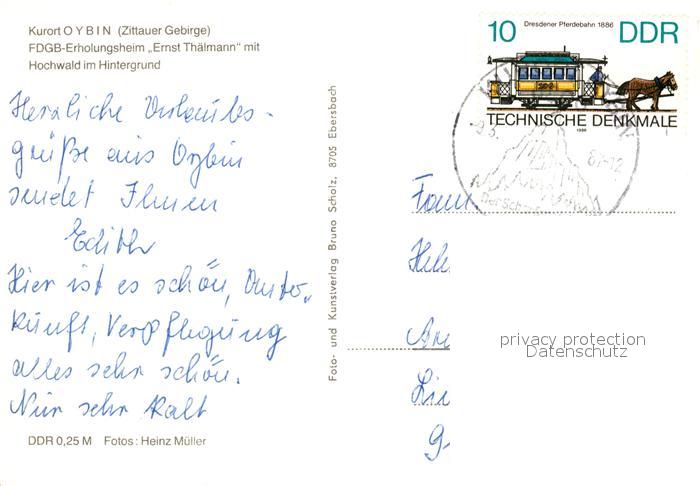 Kurort OYBIN (Zittauer Gebirge)
FDGB-Erholungsheim „Ernst Thälmann" mit
Hochwald im Hintergrund
Herzliche Urlaubs-
grüße aus Oybin
sendet Ihnen
Edith
Hier ist es schön, Unter-
kunft, Verpflegung
alles sehr schön.
Nur sehr kalt
DDR 0,25 M Fotos: Heinz Müller
Foto- und Kunstverlag Bruno Scholz, 8705 Ebersbach
Dresdener Pferdebahn 1886
10 DDR
TECHNISCHE DENKMALE
1986
Fam.
privacy protection
Datenschutz